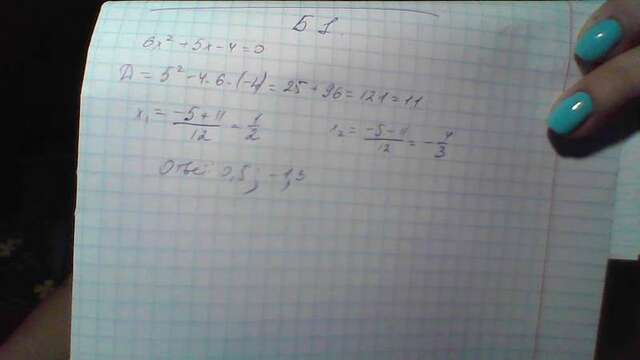 Б 1.
6x² + 5x - 4 = 0
D = 5² - 4·6·(-4) = 25 + 96 = 121 = 11
x₁ = (-5 + 11)/12 = 1/2 x₂ = (-5 - 11)/12 = -4/3
Ответ: 0,5; -1,3